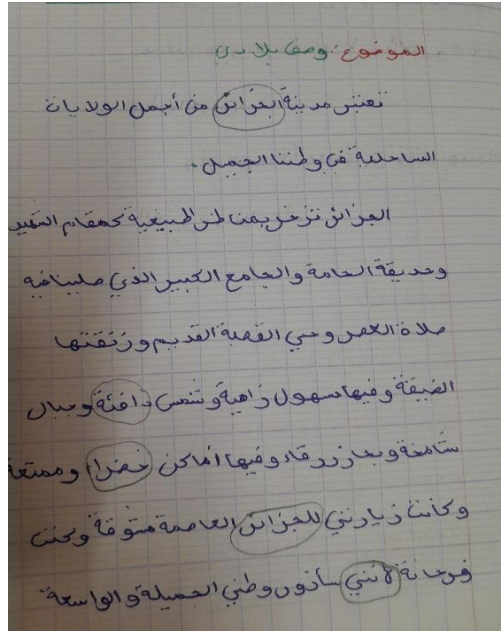 الموضوع: وصف بلادي
تعتبر مدينة الجزائر من أجمل الولايات
الساحلية في وطننا الجميل.
الجزائر تزخر بمناظر طبيعية كمقام الشهيد
وحديقة الحامة والجامع الكبير الذي صلينا فيه
صلاة العصر وحي القصبة القديم وزنقتها
الضيقة وفيها سهول زاهية وشمس دافئة وجبال
شامخة وبحار زرقاء وفيها أماكن خضراء وممتعة
وكانت زيارتي للجزائر العاصمة مشوقة وكنت
فرحانة لأنني سأزور وطني الجميلة والواسعة